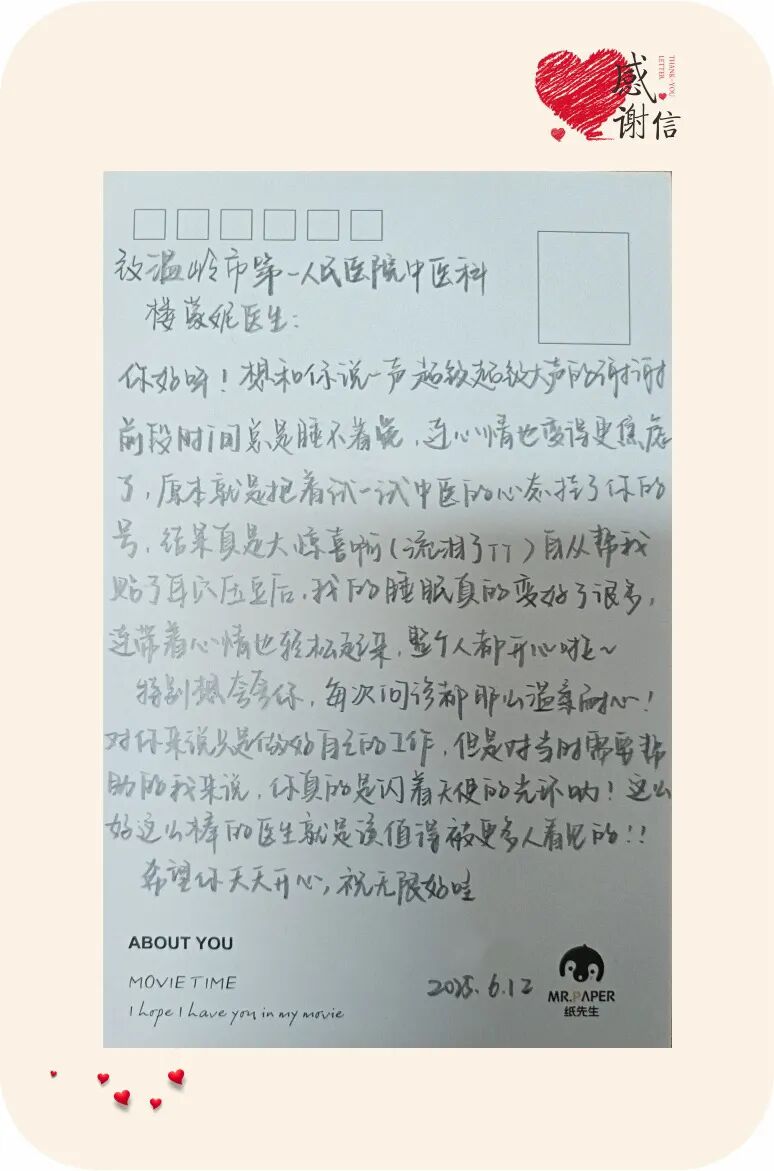 感谢信
THANK-YOU
LETTER
致温岭市第一人民医院中医科
楼蒙妮医生：
你好呀！想和你说一声超级超级大声的谢谢
前段时间总是睡不着觉，连心情也变得更焦虑
了，原本就是抱着试一试中医的心态挂了你的
号，结果真是大惊喜啊（流泪了TT）自从帮我
贴了耳穴压豆后，我的睡眠真的变好了很多，
连带着心情也轻松起来，整个人都开心哒~
特别想夸夸你，每次问诊都那么温柔耐心！
对你来说只是做好自己的工作，但是对当时需要帮
助的我来说，你真的是闪着天使的光环呐！这么
好这么棒的医生就是该值得被更多人看见的！！
希望你天天开心，祝无限好哇
ABOUT YOU
MOVIE TIME
I hope I have you in my movie
2025.6.12
MR.PAPER
纸先生